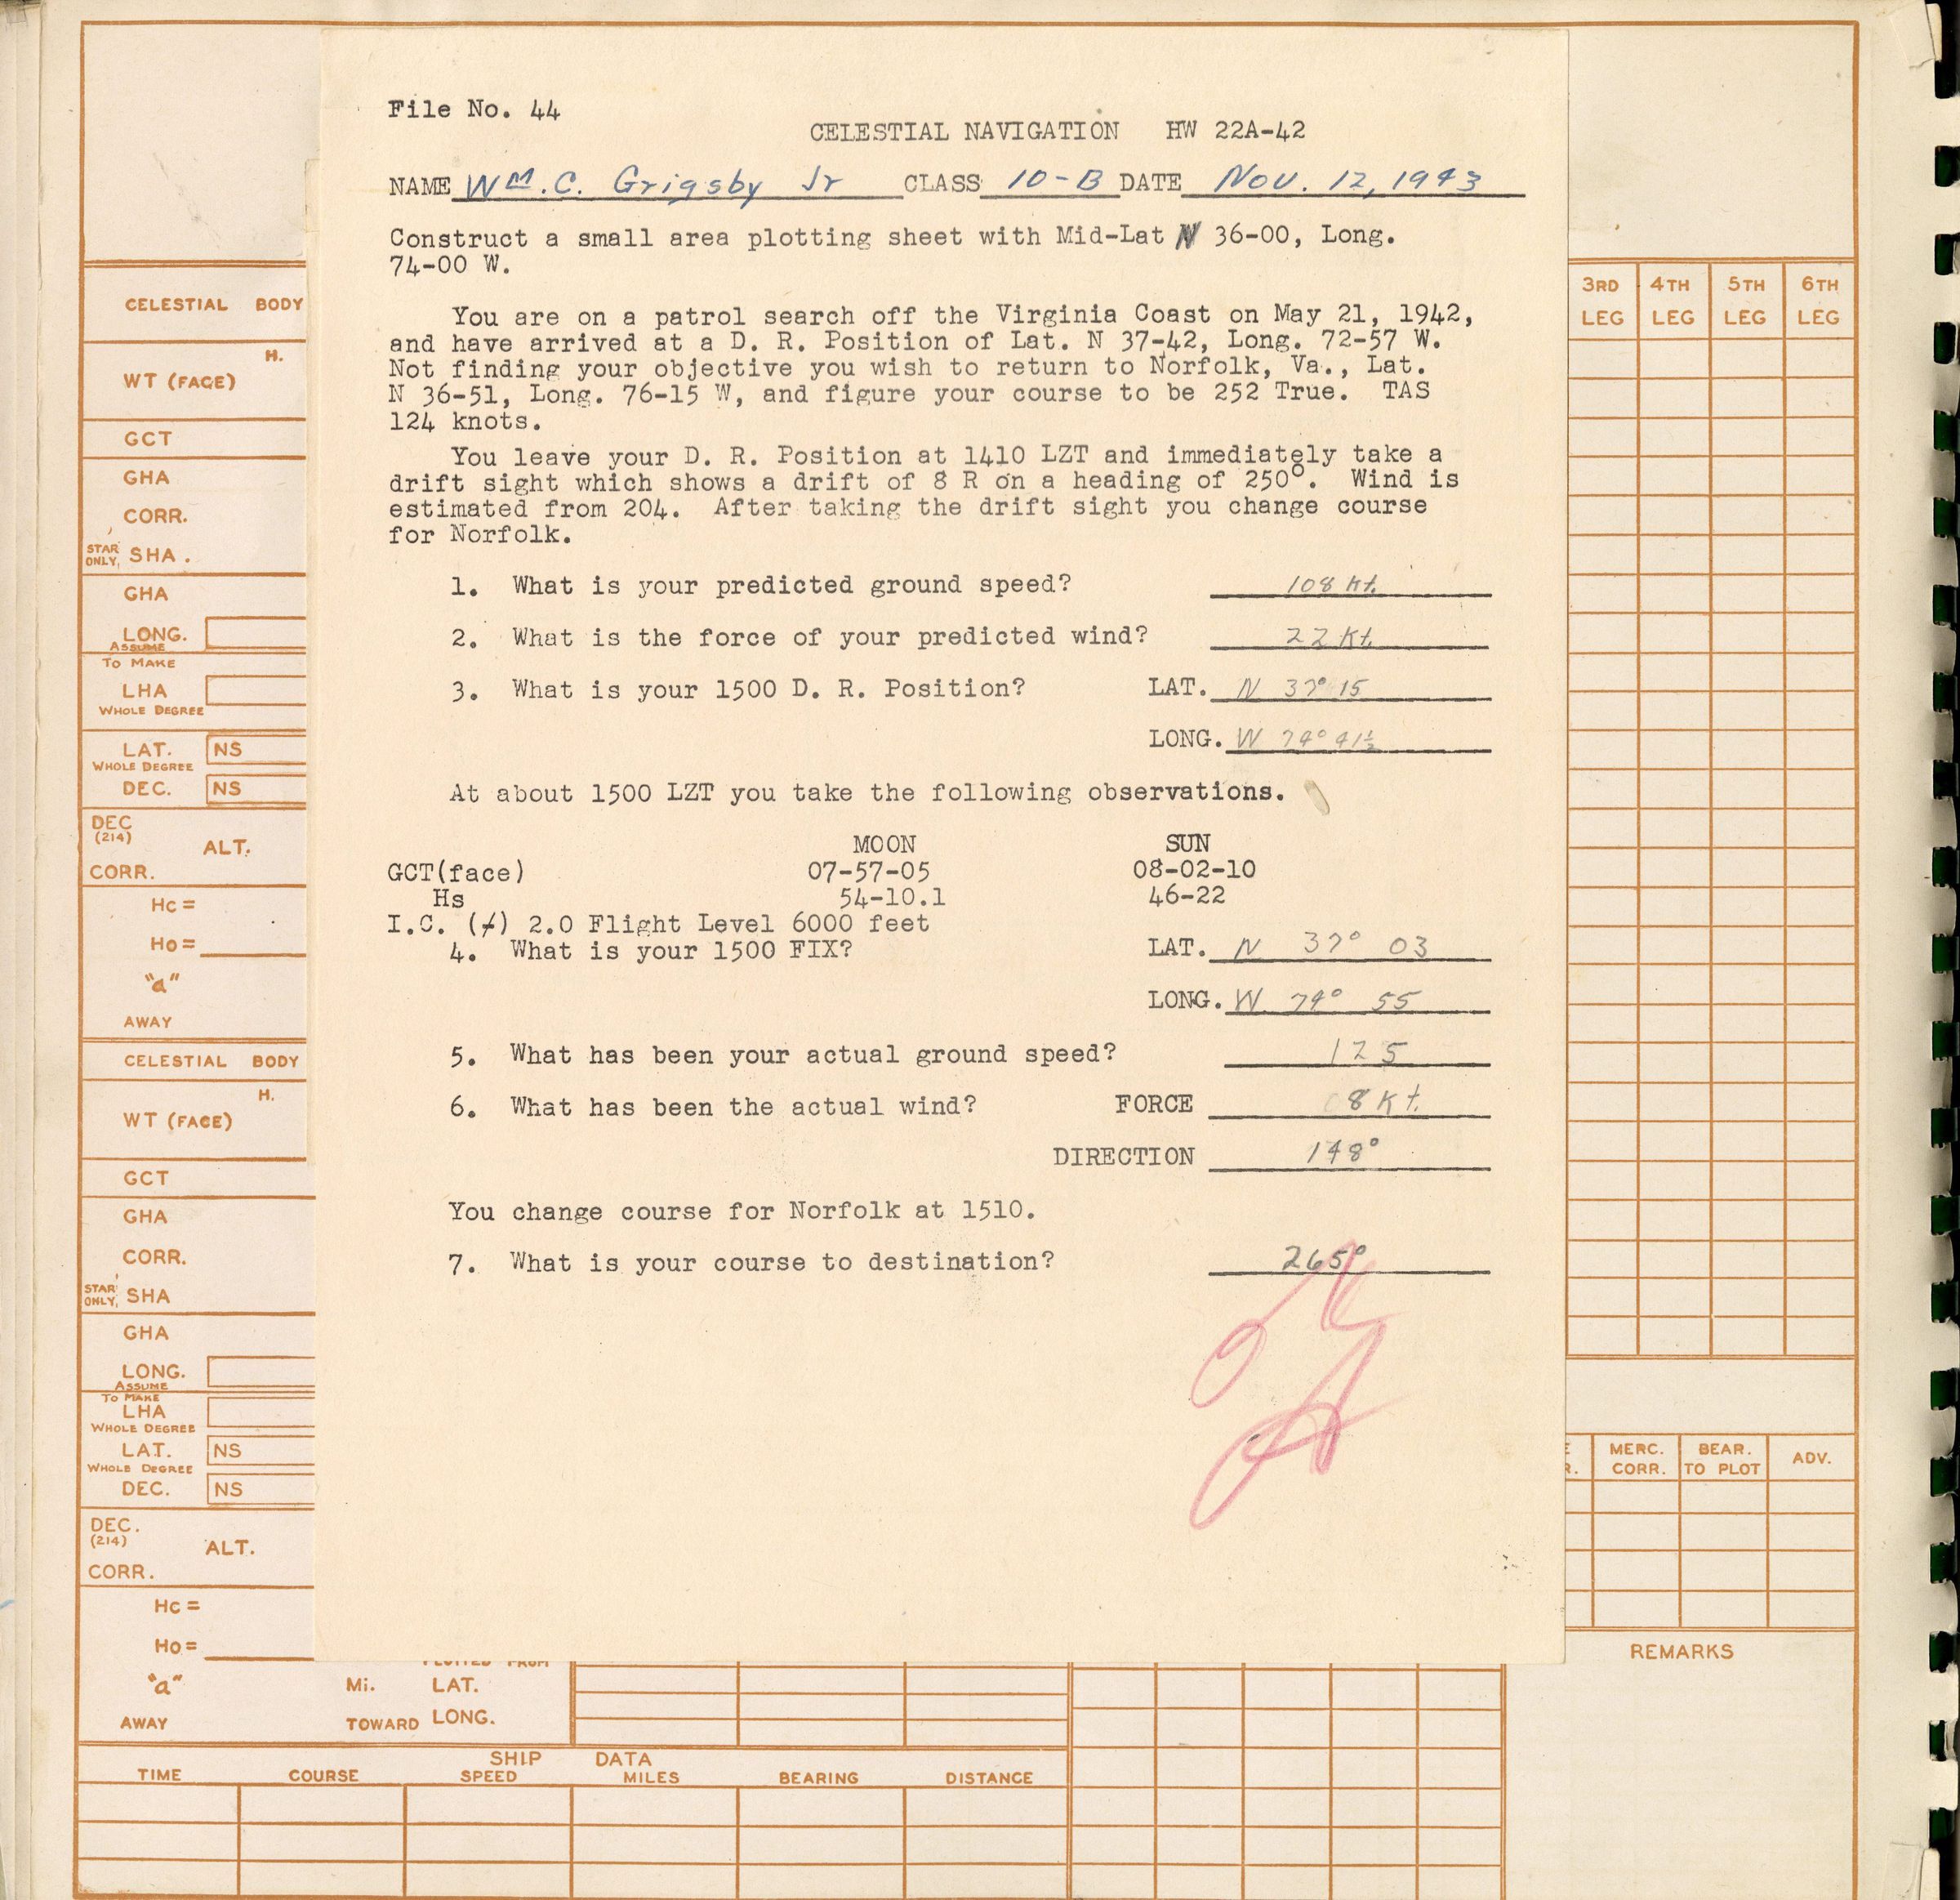 File No. 44
CELESTIAL NAVIGATION HW 22A-42
NAME Wm. C. Grigsby Jr CLASS 10-B DATE Nov. 12, 1943
Construct a small area plotting sheet with Mid-Lat N 36-00, Long.
74-00 W.
You are on a patrol search off the Virginia Coast on May 21, 1942,
and have arrived at a D. R. Position of Lat. N 37-42, Long. 72-57 W.
Not finding your objective you wish to return to Norfolk, Va., Lat.
N 36-51, Long. 76-15 W, and figure your course to be 252 True. TAS
124 knots.
You leave your D. R. Position at 1410 LZT and immediately take a
drift sight which shows a drift of 8 R on a heading of 250°. Wind is
estimated from 204. After taking the drift sight you change course
for Norfolk.
1. What is your predicted ground speed? 108 Kt.
2. What is the force of your predicted wind? 22 Kt.
3. What is your 1500 D. R. Position? LAT. N 37° 15
LONG. W 74° 41½
At about 1500 LZT you take the following observations.
MOON SUN
GCT(face) 07-57-05 08-02-10
Hs 54-10.1 46-22
I.C. (+) 2.0 Flight Level 6000 feet
4. What is your 1500 FIX? LAT. N 37° 03
LONG. W 74° 55
5. What has been your actual ground speed? 125
6. What has been the actual wind? FORCE 8 Kt.
DIRECTION 148°
You change course for Norfolk at 1510.
7. What is your course to destination? 265°
OK
CELESTIAL BODY
H.
WT (FACE)
GCT
GHA
CORR.
STAR ONLY, SHA.
GHA
LONG.
ASSUME
TO MAKE
LHA
WHOLE DEGREE
LAT. NS
WHOLE DEGREE
DEC. NS
DEC
(214) ALT.
CORR.
Hc =
Ho =
"a"
AWAY
CELESTIAL BODY
H.
WT (FACE)
GCT
GHA
CORR.
STAR ONLY, SHA
GHA
LONG.
ASSUME
TO MAKE
LHA
WHOLE DEGREE
LAT. NS
WHOLE DEGREE
DEC. NS
DEC.
(214) ALT.
CORR.
Hc =
Ho =
"a" Mi. LAT.
AWAY TOWARD LONG.
SHIP DATA
TIME COURSE SPEED MILES BEARING DISTANCE
3RD LEG 4TH LEG 5TH LEG 6TH LEG
MERC. CORR. BEAR. TO PLOT ADV.
REMARKS